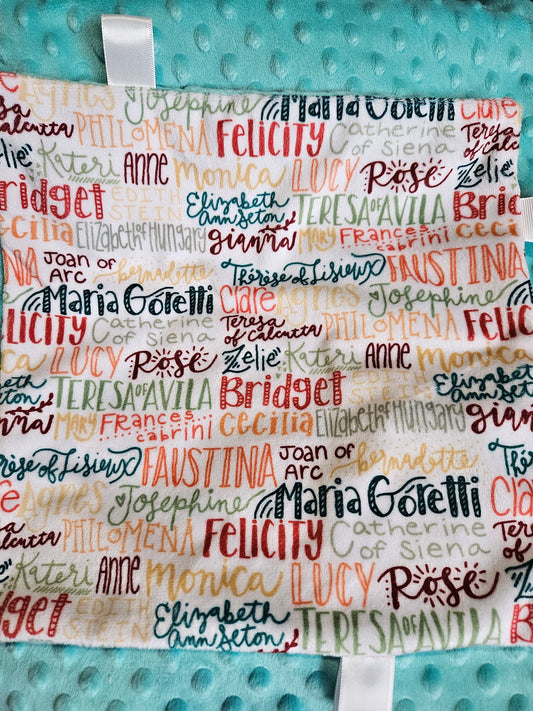 Agnes Josephine Maria Goretti Clare
Calcutta PHILOMENA FELICITY Catherine of Siena Teresa of Calcutta
Zelie Kateri ANNE Monica LUCY Rose Zelie
Bridget EDITH STEIN Elizabeth Ann Seton TERESA OF AVILA Bridget
Cecilia Elizabeth of Hungary gianna MARY Frances cabrini Ceci
NA Joan of Arc bernadette Thérèse of Lisieux FAUSTINA
Maria Goretti Clare Agnes Josephine
FELICITY Catherine of Siena Teresa of Calcutta PHILOMENA FELICI
LUCY Rose Zelie Kateri ANNE Monica
TERESA OF AVILA Bridget EDITH STEIN Elizabeth Ann Seton
MARY Frances cabrini Cecilia Elizabeth of Hungary gianna
Thérèse of Lisieux FAUSTINA Joan of Arc bernadette
Clare Agnes Josephine Maria Goretti Clare
Teresa of Calcutta PHILOMENA FELICITY Catherine of Siena Teresa of Calcutta
Kateri ANNE Monica LUCY Rose Zelie
Bridget EDITH STEIN Elizabeth Ann Seton TERESA OF AVILA Bri